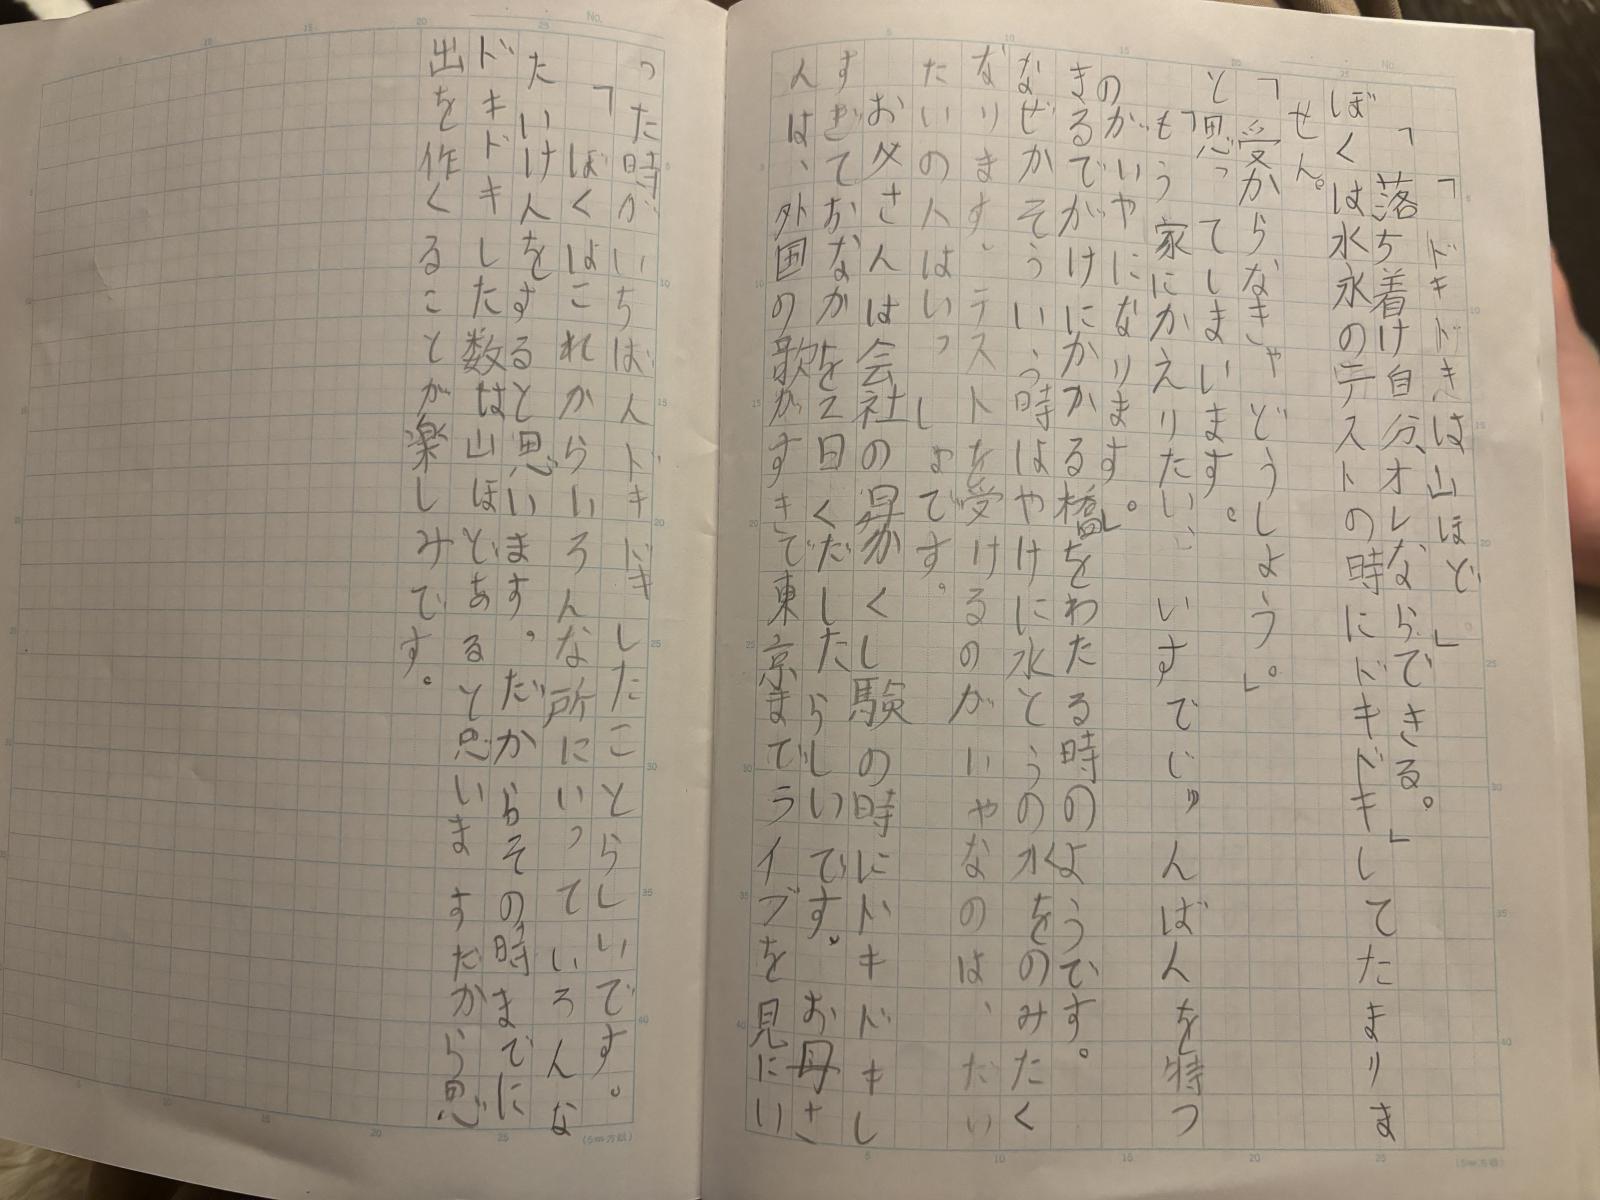 「ドキドキは山ほど」
「落ち着け自分、オレならできる。」
ぼくは水永のテストの時にドキドキしてたまりま
せん。
「受からなきゃどうしよう。」
と思ってしまいます。
「もう家にかえりたい、いすでじゅんばんを待つ
のがいやになります。」
きるでがけにかかる橋をわたる時のようです。
なぜかそういう時はやけに水とうの水をのみたく
なります、テストを受けるのがいやなのは、たい
たいの人はいっしょです。
お父さんは会社の昇かくし験の時にドキドキし
すぎておなかを2日くだしたらしいです。お母さ
んは、外国の歌がすきで東京までライブを見にい
った時がいちばんドキドキしたことらしいです。
「ぼくはこれからいろんな所にいっていろんな
たいけんをすると思います。だからその時までに
ドキドキした数は山ほどあると思いますだから思
出を作くることが楽しみです。